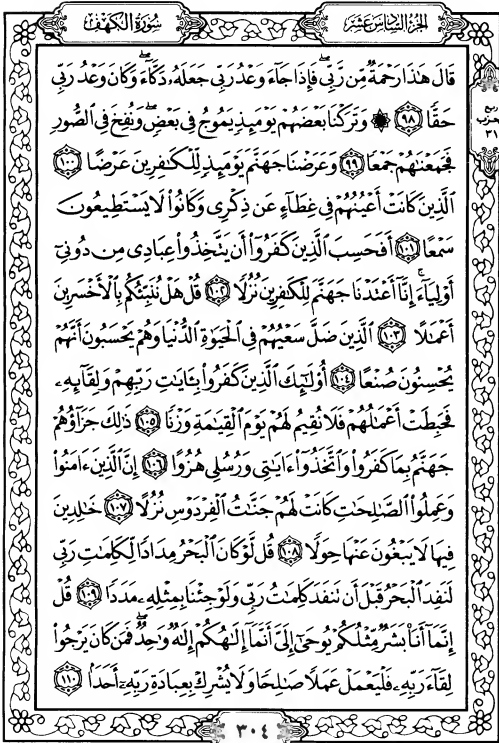 الجزء السادس عشر
سورة الكهف
قَالَ هَٰذَا رَحْمَةٌ مِّن رَّبِّي ۖ فَإِذَا جَاءَ وَعْدُ رَبِّي جَعَلَهُ دَكَّاءَ ۖ وَكَانَ وَعْدُ رَبِّي
حَقًّا ٩٨ ۞ وَتَرَكْنَا بَعْضَهُمْ يَوْمَئِذٍ يَمُوجُ فِي بَعْضٍ ۖ وَنُفِخَ فِي الصُّورِ
فَجَمَعْنَاهُمْ جَمْعًا ٩٩ وَعَرَضْنَا جَهَنَّمَ يَوْمَئِذٍ لِّلْكَافِرِينَ عَرْضًا ١٠٠
الَّذِينَ كَانَتْ أَعْيُنُهُمْ فِي غِطَاءٍ عَن ذِكْرِي وَكَانُوا لَا يَسْتَطِيعُونَ
سَمْعًا ١٠١ أَفَحَسِبَ الَّذِينَ كَفَرُوا أَن يَتَّخِذُوا عِبَادِي مِن دُونِي
أَوْلِيَاءَ ۚ إِنَّا أَعْتَدْنَا جَهَنَّمَ لِلْكَافِرِينَ نُزُلًا ١٠٢ قُلْ هَلْ نُنَبِّئُكُم بِالْأَخْسَرِينَ
أَعْمَالًا ١٠٣ الَّذِينَ ضَلَّ سَعْيُهُمْ فِي الْحَيَاةِ الدُّنْيَا وَهُمْ يَحْسَبُونَ أَنَّهُمْ
يُحْسِنُونَ صُنْعًا ١٠٤ أُولَٰئِكَ الَّذِينَ كَفَرُوا بِآيَاتِ رَبِّهِمْ وَلِقَائِهِ
فَحَبِطَتْ أَعْمَالُهُمْ فَلَا نُقِيمُ لَهُمْ يَوْمَ الْقِيَامَةِ وَزْنًا ١٠٥ ذَٰلِكَ جَزَاؤُهُمْ
جَهَنَّمُ بِمَا كَفَرُوا وَاتَّخَذُوا آيَاتِي وَرُسُلِي هُزُوًا ١٠٦ إِنَّ الَّذِينَ آمَنُوا
وَعَمِلُوا الصَّالِحَاتِ كَانَتْ لَهُمْ جَنَّاتُ الْفِرْدَوْسِ نُزُلًا ١٠٧ خَالِدِينَ
فِيهَا لَا يَبْغُونَ عَنْهَا حِوَلًا ١٠٨ قُل لَّوْ كَانَ الْبَحْرُ مِدَادًا لِّكَلِمَاتِ رَبِّي
لَنَفِدَ الْبَحْرُ قَبْلَ أَن تَنفَدَ كَلِمَاتُ رَبِّي وَلَوْ جِئْنَا بِمِثْلِهِ مَدَدًا ١٠٩ قُلْ
إِنَّمَا أَنَا بَشَرٌ مِّثْلُكُمْ يُوحَىٰ إِلَيَّ أَنَّمَا إِلَٰهُكُمْ إِلَٰهٌ وَاحِدٌ ۖ فَمَن كَانَ يَرْجُو
لِقَاءَ رَبِّهِ فَلْيَعْمَلْ عَمَلًا صَالِحًا وَلَا يُشْرِكْ بِعِبَادَةِ رَبِّهِ أَحَدًا ١١٠
ربع
حزب
٣١
٣٠٤